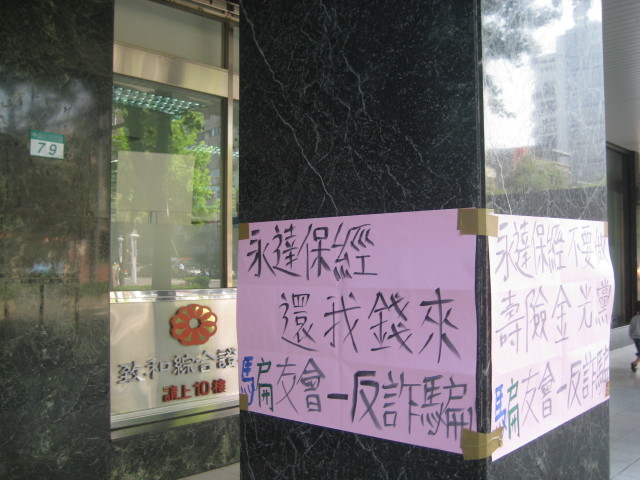 79
致和綜合證
請上10樓
永達保經
還我錢來
騙友會一反詐騙
永達保經不要做
壽險金光黨
騙友會一反詐騙